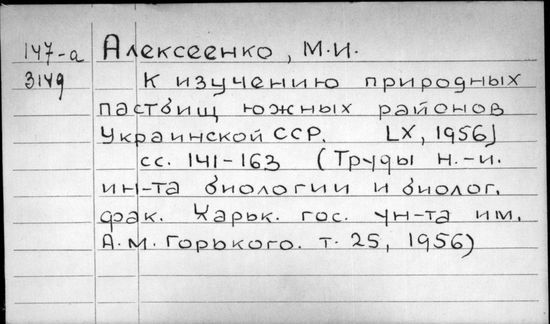 147-а Алексеенко, М.И.
3149 К изучению природных
пастбищ южных районов
Украинской ССР. [X, 1956]
сс. 141-163 (Труды н.-и.
ин-та биологии и биолог.
фак. Харьк. гос. ун-та им.
А.М. Горького. т. 25, 1956)